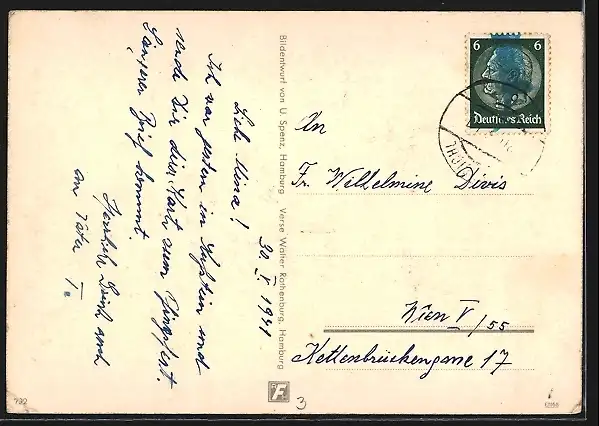 30. V 1941
Liebe Minna!
Ich war gestern in Kufstein und
sende Dir diese Karte zum
Längerer Brief kommt.
Herzliche Grüße auch
an Vater T.
Bildentwurf von U. Spenz, Hamburg Verse Walter Rothenburg, Hamburg
6 6
Deutsches Reich
An
Fr. Wilhelmine Divis
Wien V/55
Kettenbrückengasse 17
F
3